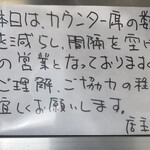 本日は、カウンター席の数
を減らし、間隔を空け
の営業となっております
ご理解、ご協力の程
宜しくお願いします。
店主